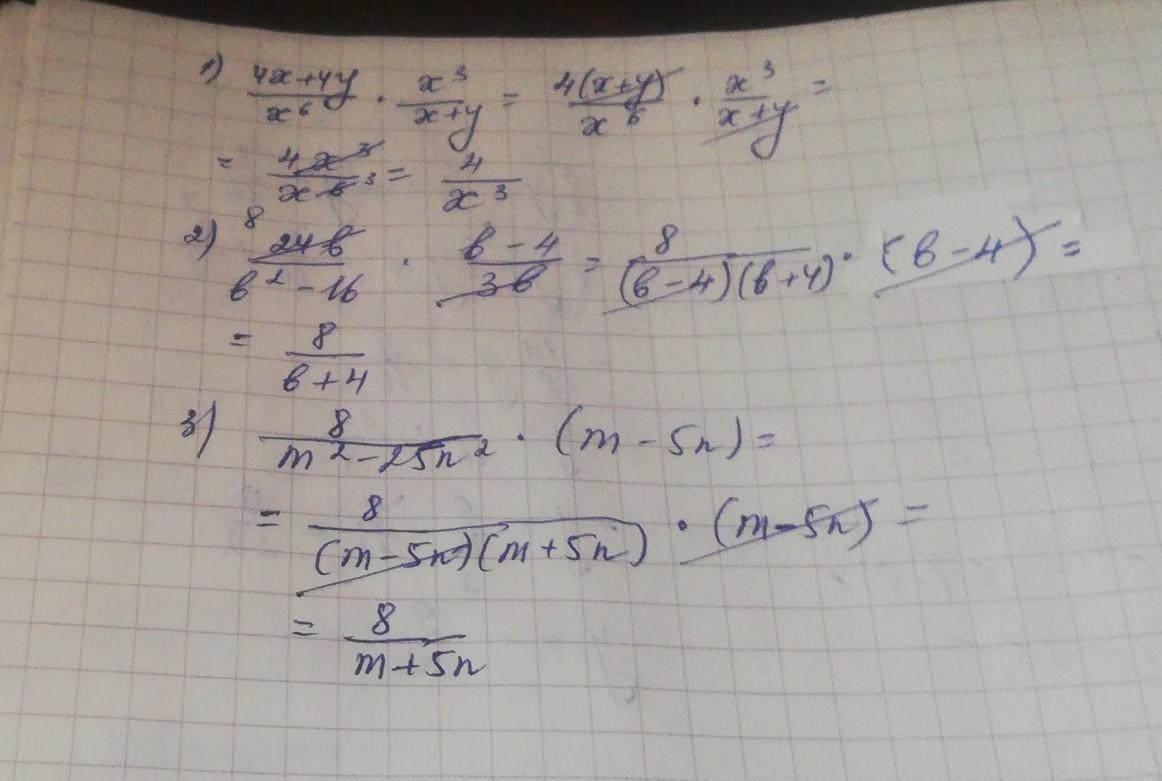 1) (4x+4y)/x^6 · x^3/(x+y) = 4(x+y)/x^6 · x^3/(x+y) =
= 4x^3/x^6 3 = 4/x^3
2) 8 24b/(b^2-16) · (b-4)/3b = 8/((b-4)(b+4)) · (b-4) =
= 8/(b+4)
3) 8/(m^2-25n^2) · (m-5n) =
= 8/((m-5n)(m+5n)) · (m-5n) =
= 8/(m+5n)